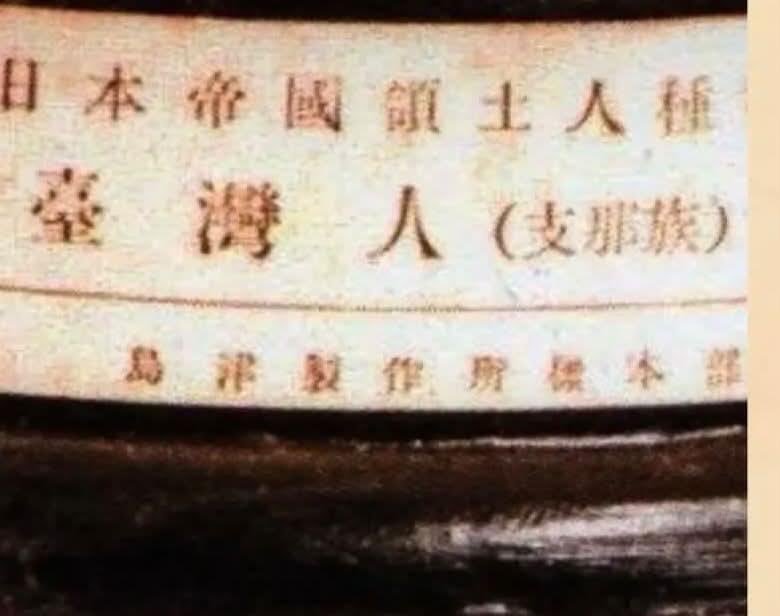 日本帝國領土人種
臺灣人(支那族)
島津製作所標本部